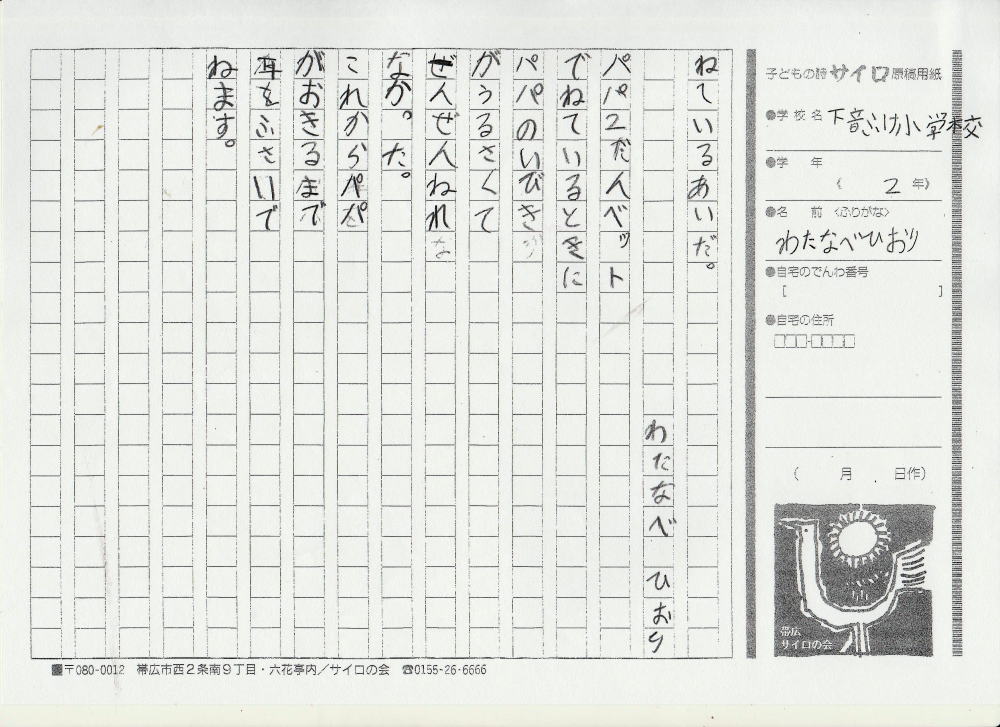 子どもの詩サイロ原稿用紙
●学校名 下音ふけ小学校
●学 年
( 2 年)
●名 前 〈ふりがな〉
わたなべひおり
●自宅のでんわ番号
[ ]
●自宅の住所
( 月 日作)
帯広
サイロの会
ねているあいだ。
わたなべ ひおり
パパ2だんベット
でねているときに
パパのいびきが
がうるさくて
ぜんぜんねれな
なか。た。
これからパパ
がおきるまで
耳をふさいで
ねます。
〒080-0012 帯広市西2条南9丁目・六花亭内/サイロの会 ☎0155-26-6666